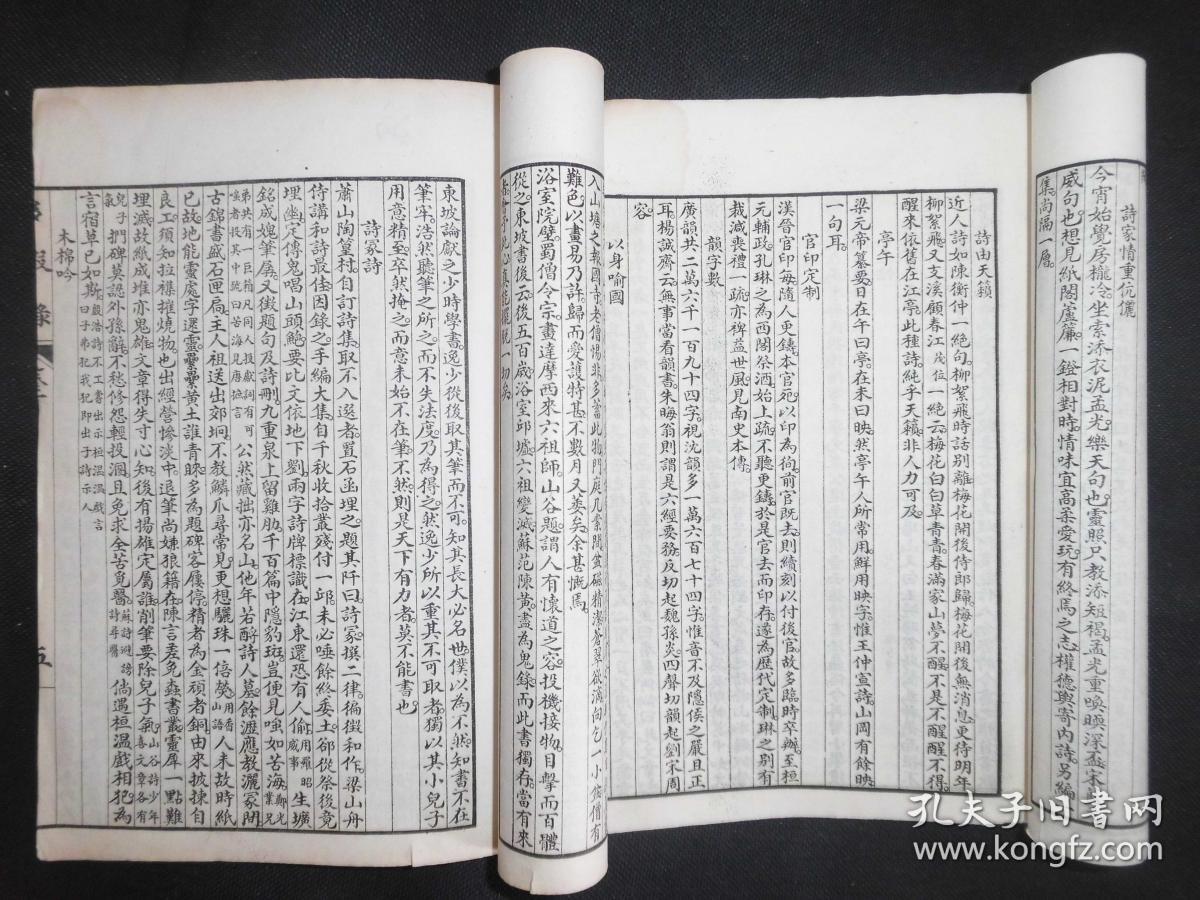 詩家情重伉儷
今宵始覺房櫳冷坐索添衣泥孟光樂天句也靈照只教添短褐孟光重喚煗深盃宋
威句也想見紙閣蘆簾一鐙相對時情味宜高柔愛玩有終焉之志權德輿寄內詩另編
集尚隔一層
詩由天籟
近人詩如陳衡仲一絕句柳絮飛時話別離梅花開後侍郎歸梅花開後無消息更待明年
柳絮飛又支溪顧春江茂位一絕云梅花白白草青青春滿家山夢不醒不是不醒醒不得
醒來依舊在江亭此種詩純乎天籟非人力可及
亭午
梁元帝纂要日在午曰亭在未曰映然亭午人所常用鮮用映字惟王仲宣詩山岡有餘映
一句耳
官印定制
漢晉官印每隨人更鑄本官死以印為徇前官既去則續刻以付後官故多臨時卒辦至桓
元輔政孔琳之為西閣祭酒始上疏不聽更鑄於是官去而印存遂為歷代定制琳之別有
裁減喪禮一疏亦稗益世風見南史本傳
韻字數
廣韻共二萬六千一百九十四字視沈韻多一萬六百七十四字惟音不及隱侯之嚴且正
耳楊誠齋云無事當看韻書朱晦翁則謂是六經要務反切起魏孫炎四聲切韻起劉宋周
容
以身喻國
入山塘之報國寺老僧惕非多蓄此物門庭几案間盆磁精潔蒼翠欲滴向乞一小侖僧有
難色以畫易乃許歸而愛護特甚不數月又萎矣余甚慨焉
浴室院壁蜀僧令宗畫達摩西來六祖師山谷題謂人有懷道之容投機接物目擊而百體
從之東坡書後云後五百歲浴室邱墟六祖變滅蘇范陳黃盡為鬼錄而此書獨存當有來
一切矣
東坡論獻之少時學書逸少從後取其筆而不可知其長大必名世僕以為不然知書不在
筆牢浩然聽筆之所之而不失法度乃為得之然逸少所以重其不可取者獨以其小兒子
用意精至卒然掩之而意未始不在筆不然則是天下有力者莫不能書也
詩冢詩
蕭山陶篁村自訂詩集取不入選者置石函埋之題其阡曰詩冢撰二律徧徵和作梁山舟
侍講和詩最佳因錄之手編大集自千秋收拾叢殘付一邱未必唾餘終委土卻從祭後竟
埋坐定傳鬼唱山頭鮑要比文依地下劉兩字詩牌標識在江東還恐有人偷用羅昭諫事生壙
銘成媿筆孱又徵題句及詩刪九重泉上留雞肋千百篇中隱豹斑豈便見嗤如苦海鄭光業兄
弟共有一巨箱凡同人投獻詞有可嗤者投其中號曰苦海見唐摭言公然藏拙亦名山他年若酹詩人墓餘瀝應教灑冢間
古錦書盛石匣局主人祖送出郊坰不教鱗爪尋常見更想驪珠一倍熒用香山語人未故時紙
已故地能靈處字還靈纍纍黃土誰青眼多為題碑客屨停精者為金頑者銅由來披揀自
良工須知拉襍摧燒物也出經營慘淡中退筆尚嫌狼籍在陳言差免蠹書叢靈犀一點難
埋滅故紙成堆亦鬼雄文章得失寸心知後有揚雄定屬誰削筆要除兒子氣山谷詩少年喜文章各有
兒子氣捫碑莫認外孫辭不愁修怨輕投溷且免求全苦覓醫蘇詩尋醫倘遇桓溫戲相犯為
言宿草已如斯殷浩詩不工書出示桓溫溫戲言曰子弗犯我我犯即出子詩示人
木棉吟
五
孔夫子旧书网
www.kongfz.com